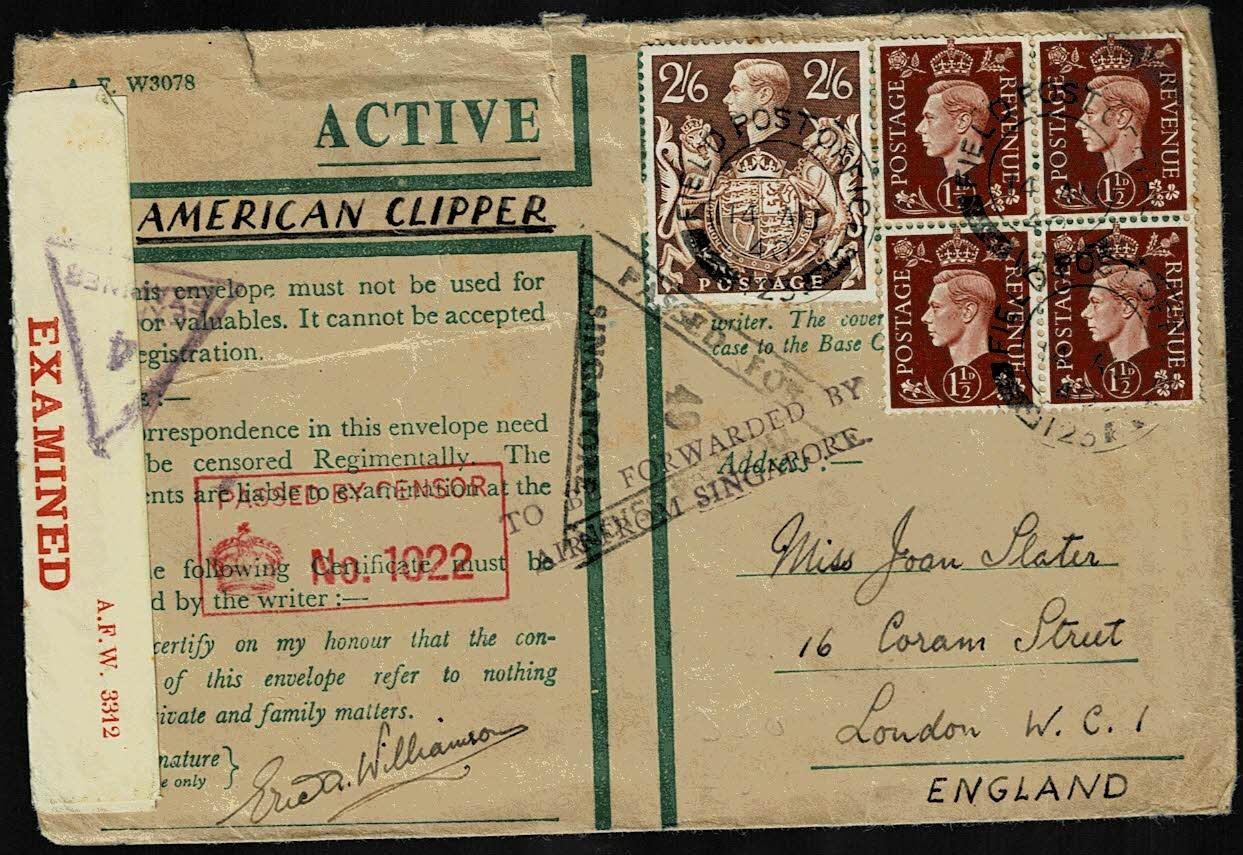 W3078
ACTIVE
AMERICAN CLIPPER
envelope must not be used for
or valuables. It cannot be accepted
egistration.
:—
orrespondence in this envelope need
be censored Regimentally. The
ents are liable to examination at the
e following Certificate must be
d by the writer :—
certify on my honour that the con-
of this envelope refer to nothing
ivate and family matters.
nature
e only
Eric A. Williamson
EXAMINED
A.F.W. 3312
4
PASSED BY CENSOR
No. 1022
PASSED FOR
SINGAPORE
49
TO BE FORWARDED BY
AIR FROM SINGAPORE.
2/6 2/6
POSTAGE
FIELD POST OFFICE
14 AU
POSTAGE REVENUE
1½D
POSTAGE REVENUE
1½D
POSTAGE REVENUE
1½D
POSTAGE REVENUE
1½D
FIELD POST
14
writer. The cover
case to the Base
Address :—
Miss Joan Slater
16 Coram Street
London W.C.1
ENGLAND